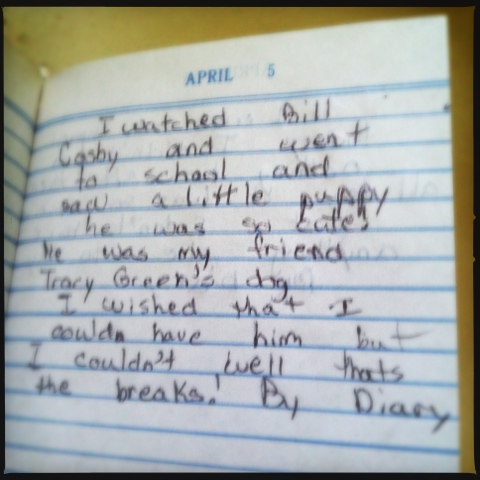 APRIL 5
I watched Bill
Cosby and went
to school and
saw a little puppy
he was so cute!
He was my friend
Tracy Green's dog
I wished that I
couldn have him but
I couldn't well thats
the breaks! By Diary